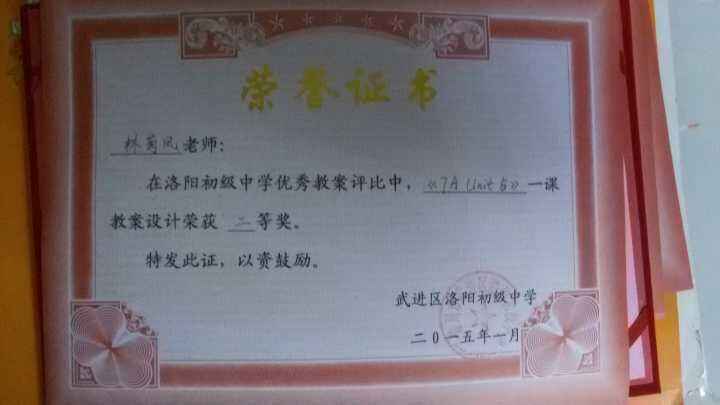 荣誉证书
林菊凤老师：
在洛阳初级中学优秀教案评比中，《7A Unit 6》一课
教案设计荣获 二 等奖。
特发此证，以资鼓励。
武进区洛阳初级中学
二0一五年一月